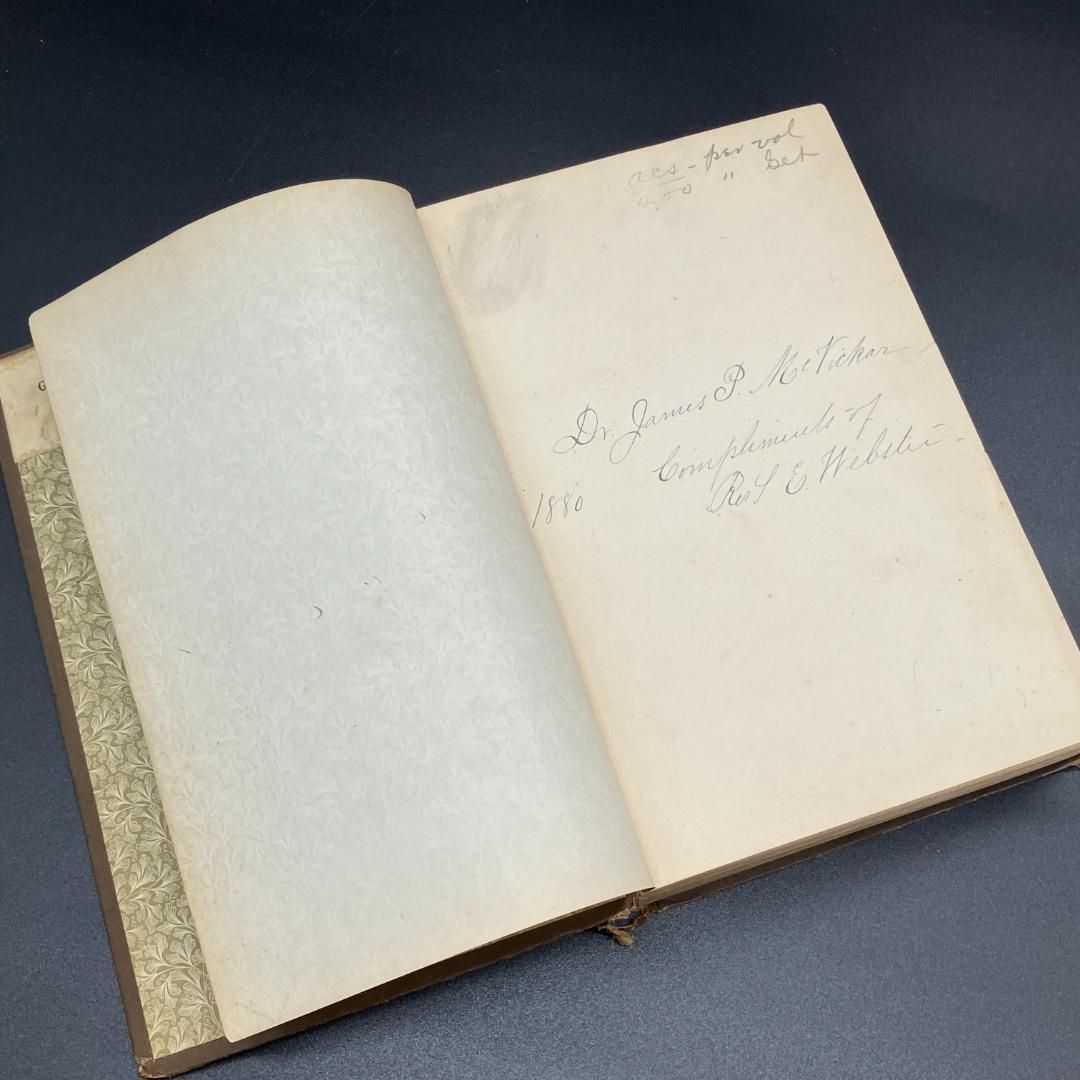 G
acs - per vol
4,00 " Set
Dr. James P. McVickar
Compliments of
Rev S E. Webster
1880